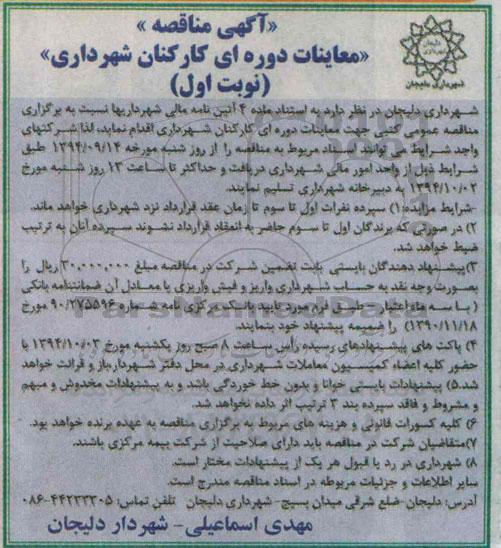 «آگهی مناقصه»
«معاینات دوره ای کارکنان شهرداری»
(نوبت اول)
شهرداری دلیجان
شهرداری دلیجان در نظر دارد به استناد ماده ۴ آئین نامه مالی شهرداریها نسبت به برگزاری
مناقصه عمومی کتبی جهت معاینات دوره ای کارکنان شهرداری اقدام نماید، لذا شرکتهای
واجد شرایط می توانند اسناد مربوط به مناقصه را از روز شنبه مورخه ۱۳۹۴/۰۹/۱۴ طبق
شرایط ذیل از واحد امور مالی شهرداری دریافت و حداکثر تا ساعت ۱۳ روز شنبه مورخ
۱۳۹۴/۱۰/۰۲ به دبیرخانه شهرداری تسلیم نمایند.
-شرایط مزایده:۱) سپرده نفرات اول تا سوم تا زمان عقد قرارداد نزد شهرداری خواهد ماند.
۲) در صورتی که برندگان اول تا سوم حاضر به انعقاد قرارداد نشوند سپرده آنان به ترتیب
ضبط خواهد شد.
۳)پیشنهاد دهندگان بایستی بابت تضمین شرکت در مناقصه مبلغ ۳۰،۰۰۰،۰۰۰ ریال را
بصورت وجه نقد به حساب شهرداری واریز و فیش واریزی یا معادل آن ضمانتنامه بانکی
( با سه ماه اعتبار و طبق فرم مورد تایید بانک مرکزی نامه شماره ۹۰/۲۷۵۵۹۶ مورخ
۱۳۹۰/۱۱/۱۸) را ضمیمه پیشنهاد خود بنمایند.
۴) پاکت های پیشنهادهای رسیده رأس ساعت ۸ صبح روز یکشنبه مورخ ۱۳۹۴/۱۰/۰۳ با
حضور کلیه اعضاء کمیسیون معاملات شهرداری در محل دفتر شهردار،باز و قرائت خواهد
شد.۵) پیشنهادات بایستی خوانا و بدون خط خوردگی باشد و به پیشنهادات مخدوش و مبهم
و مشروط و فاقد سپرده بند ۳ ترتیب اثر داده نخواهد شد.
۶) کلیه کسورات قانونی و هزینه های مربوط به برگزاری مناقصه به عهده برنده خواهد بود.
۷)متقاضیان شرکت در مناقصه باید دارای صلاحیت از شرکت بیمه مرکزی باشند.
۸) شهرداری در رد یا قبول هر یک از پیشنهادات مختار است.
سایر اطلاعات و جزئیات مربوطه در اسناد مناقصه مندرج است.
آدرس: دلیجان-ضلع شرقی میدان بسیج- شهرداری دلیجان تلفن تماس: ۴۴۲۳۳۳۰۵-۰۸۶
مهدی اسماعیلی- شهردار دلیجان
ParsNamadData